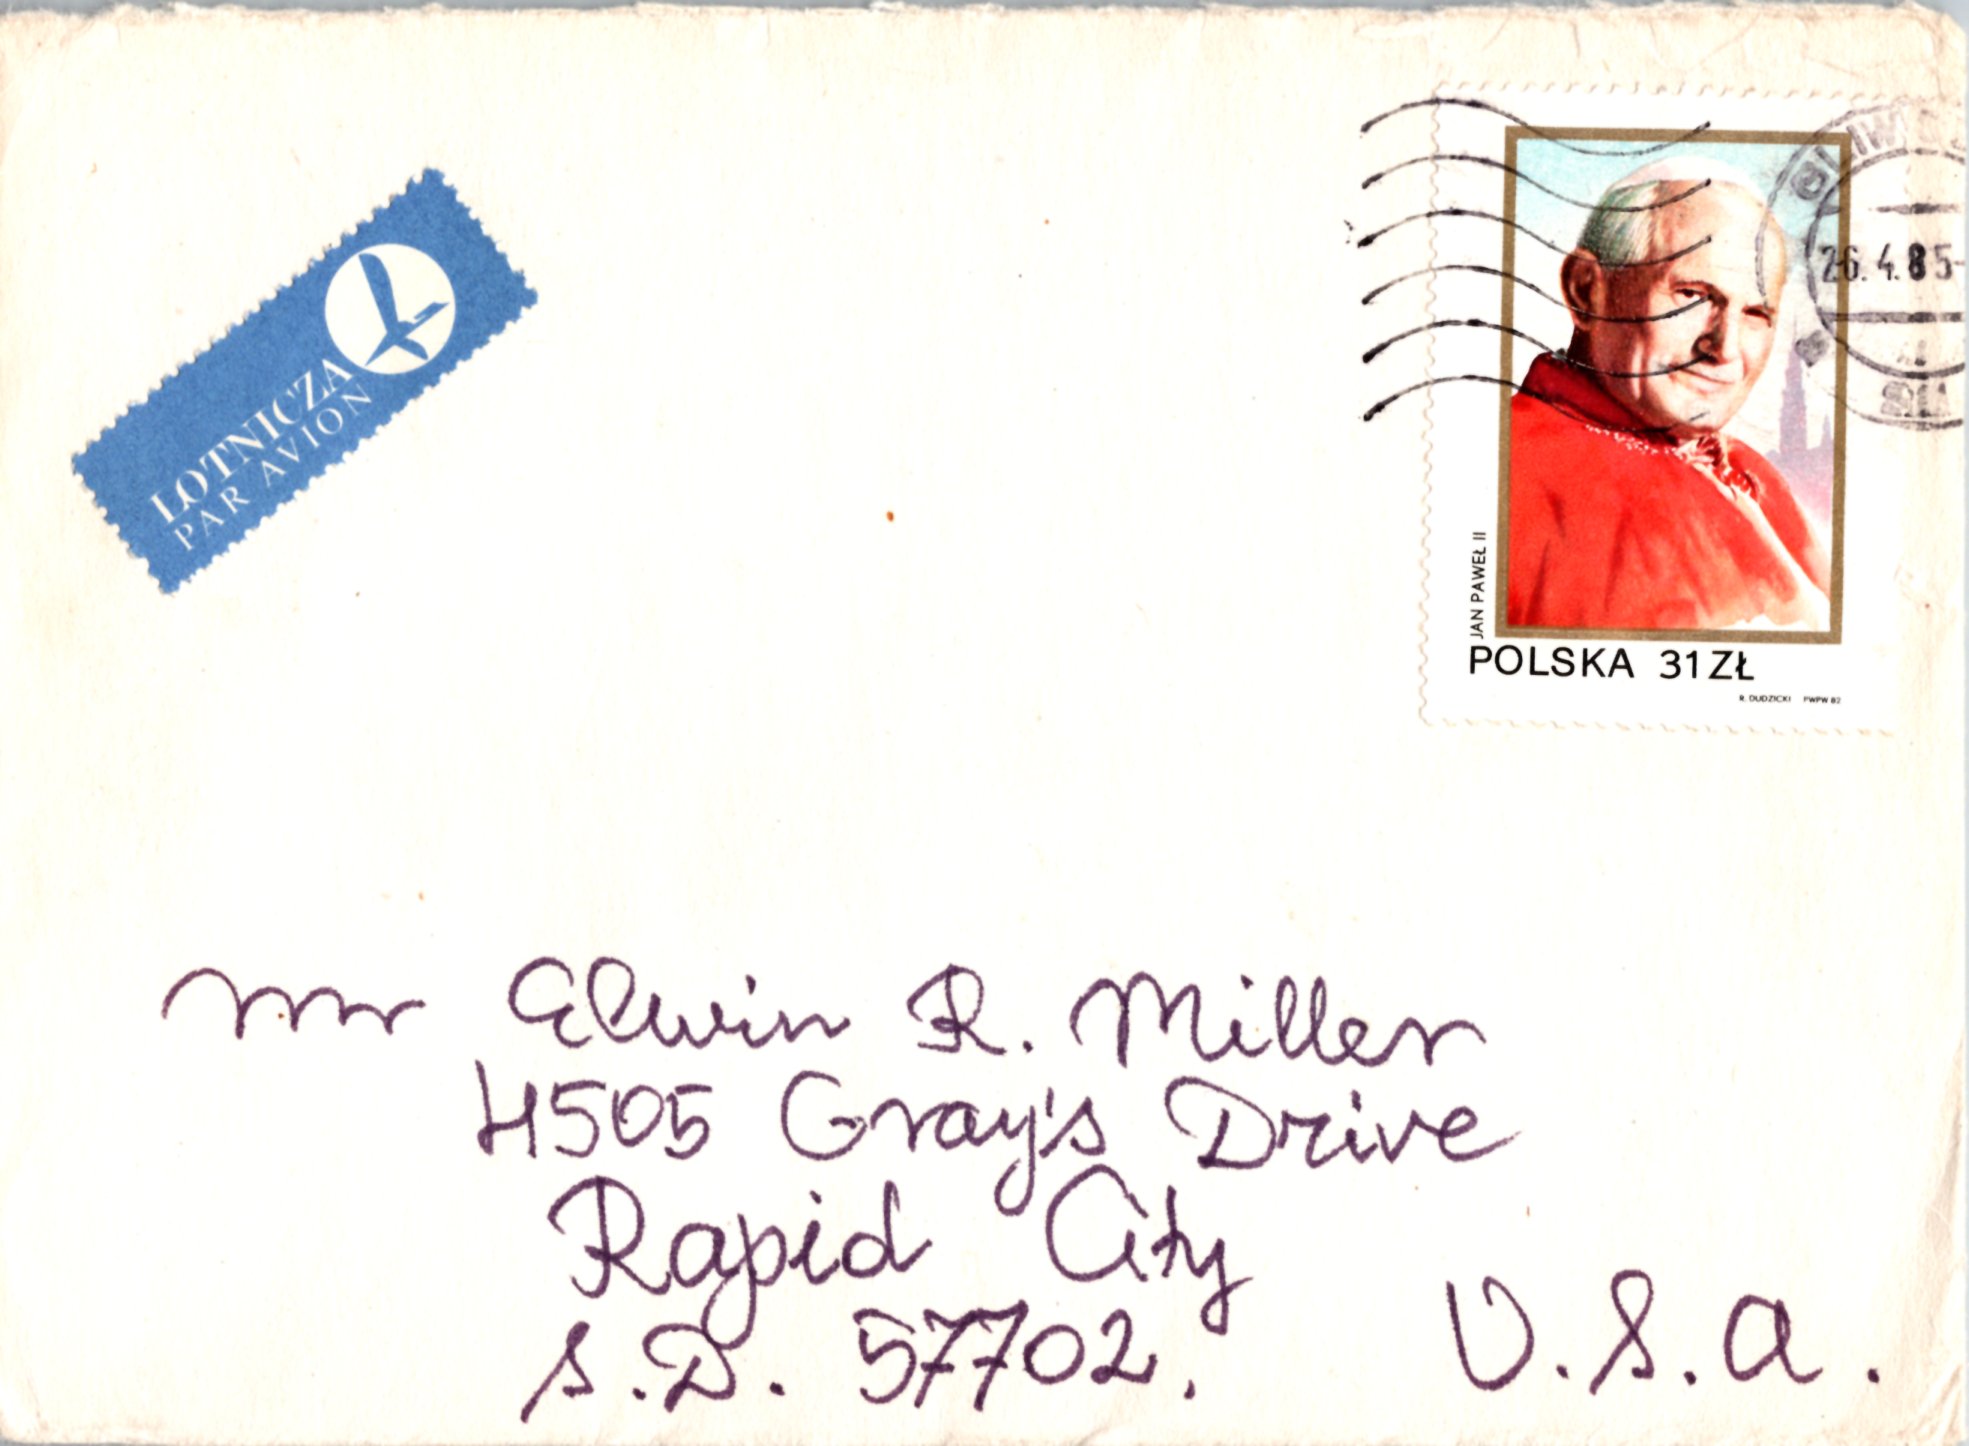 LOTNICZA
PAR AVION
26.4.85-
JAN PAWEŁ II
POLSKA 31 ZŁ
R. DUDZICKI PWPW 82
Mr Elwin R. Miller
4505 Gray's Drive
Rapid City
S.D. 57702.
U.S.A.